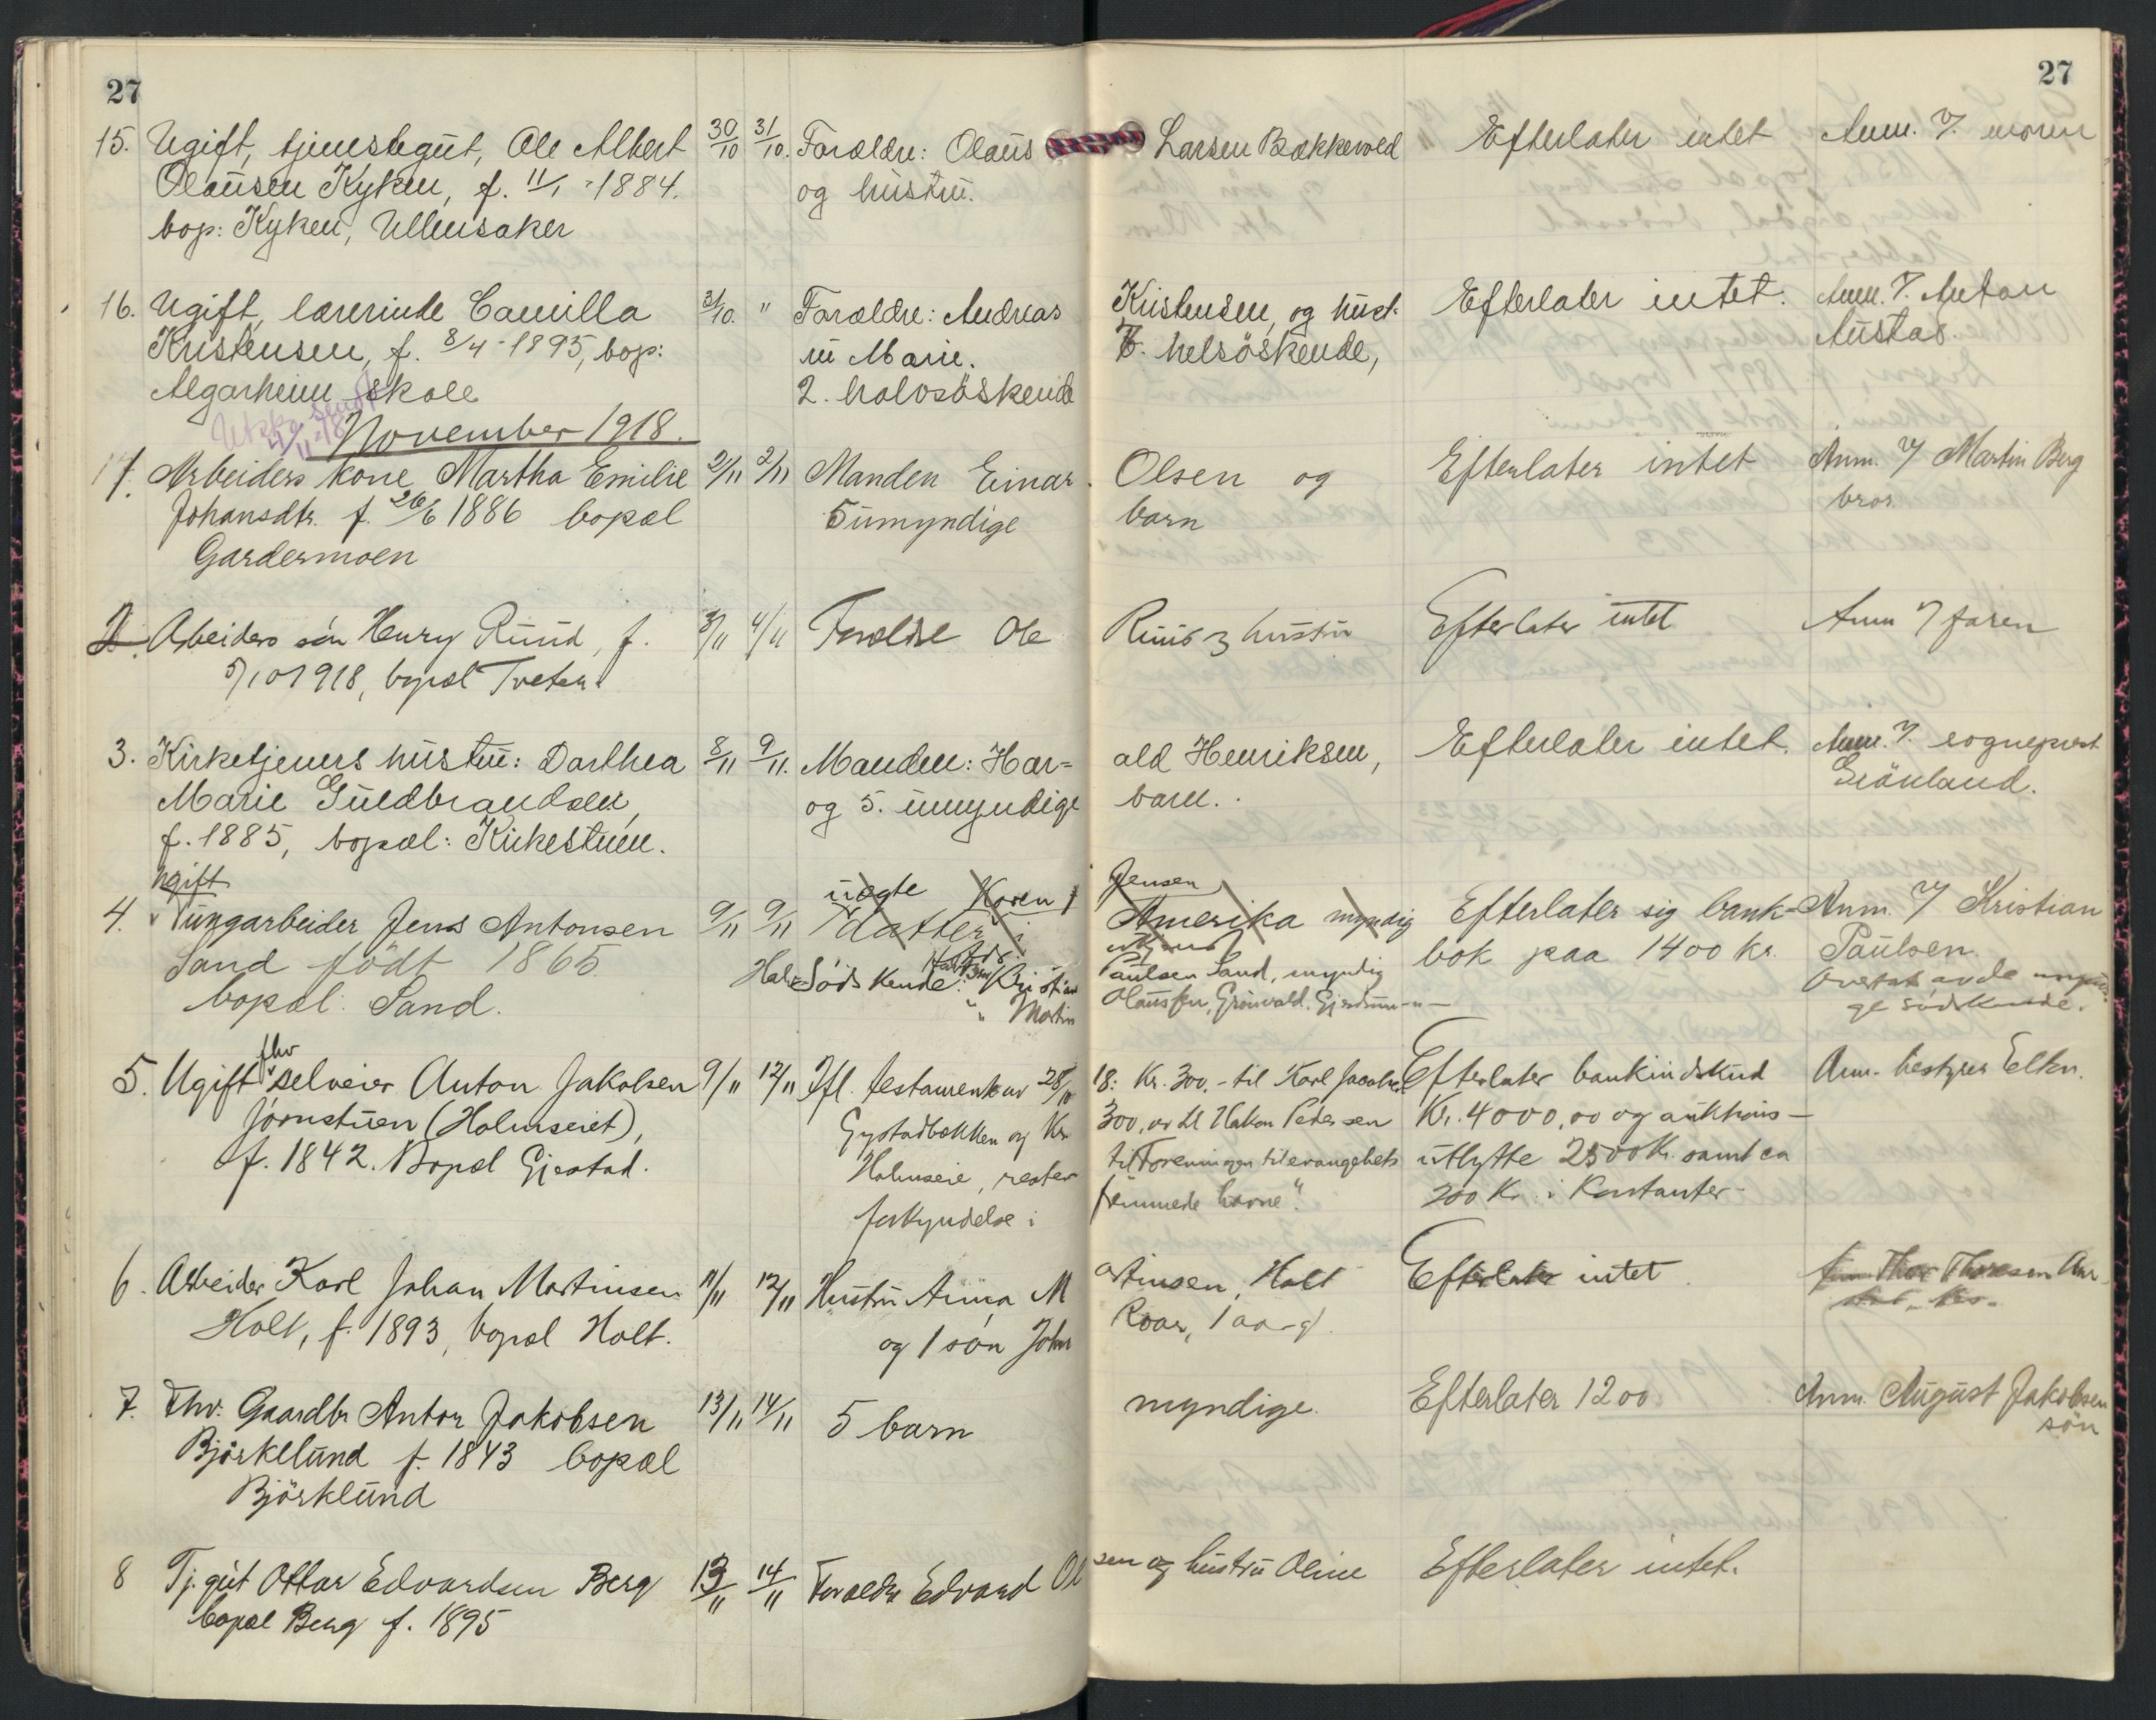 27
27
15. Ugift, tjenstegut, Ole Albert 30/10 31/10. Forældre: Olaus Larsen Bækkevold Efterlater intet Anm. v. moren
Olausen Kyken, f. 11/1 - 1884. og hustru.
bop: Kyken, Ullensaker
16. Ugift, lærerinde Camilla 31/10. " Forældre: Andreas Kristensen, og hust- Efterlater intet. Anm. v. Anton
Kristensen, f. 8/4 - 1895, bop: ru Marie. helsöskende, Austad.
Algarheim skole 2. halvsöskende
Utskr. sendt
4/11-18
November 1918.
1. Arbeiders kone Martha Emilie 2/11 2/11 Manden Einar Olsen og Efterlater intet Anm. v Martin Berg
Johansdtr. f. 26/6 1886 bopæl 5 umyndige barn bror
Gardermoen
2. Arbeiders sön Henry Ruud, f. 3/11 4/11 Forældre Ole Ruud & hustru Efterlater intet Anm v faren
5/10 1918, bopæl Tveter
3. Kirketjeners hustru: Dorthea 8/11 9/11. Manden: Har= ald Henriksen, Efterlater intet. Anm. v. sogneprest
Marie Guldbrandsen, og 5. umyndige barn. Grönland.
f. 1885, bopæl: Kirkestuen.
Ugift uægte Karen Jensen
4. Tungarbeider Jens Antonsen 9/11 9/11 datter i Amerika myndig Efterlater sig bank- Anm. v Kristian
Sand födt 1865 bok paa 1400 kr. Paulsen.
Halvsödskende: Kristian Paulsen Sand, myndig
bopæl: Sand. " Martin Olaussen, Grönvold. Gjerdrum -"- ge södskende.
5. Ugift fhv selveier Anton Jakobsen 9/11 12/11 Ifl. testament av 28/10 18: Kr. 300,- til Karl Jacobsen Efterlater bankindskud Anm. bestyrer Elkn.
Jörnstuen (Holmseiet), Gystadbækken og Kr. 300, or til Hakon Pedersen Kr. 4000,00 og auktions-
f. 1842. Bopæl Gjestad. Holmseie, resten til "Foreningen til evangeliets utlytte 2500 Kr. samt ca
forkyndelse i fremmede havne". 200 Kr. i Kontanter.
6. Arbeider Karl Johan Martinsen 11/11 12/11 Hustru Anna M artinsen, Holt Efterlater intet
Holt, f. 1893, bopæl Holt. og 1 sön John Roar, 1 aar gl.
7. Fhv. Gaardbr Anton Jakobsen 13/11 14/11 5 barn myndige. Efterlater 1200 Anm. August Jakobsen
Björklund f. 1843 bopæl sön
Björklund
8 Tj. gut Ottar Edvardsen Berg 13/11 14/11 Forældre Edvard Ol sen og hustru Oline Efterlater intet.
bopæl Berg f. 1895